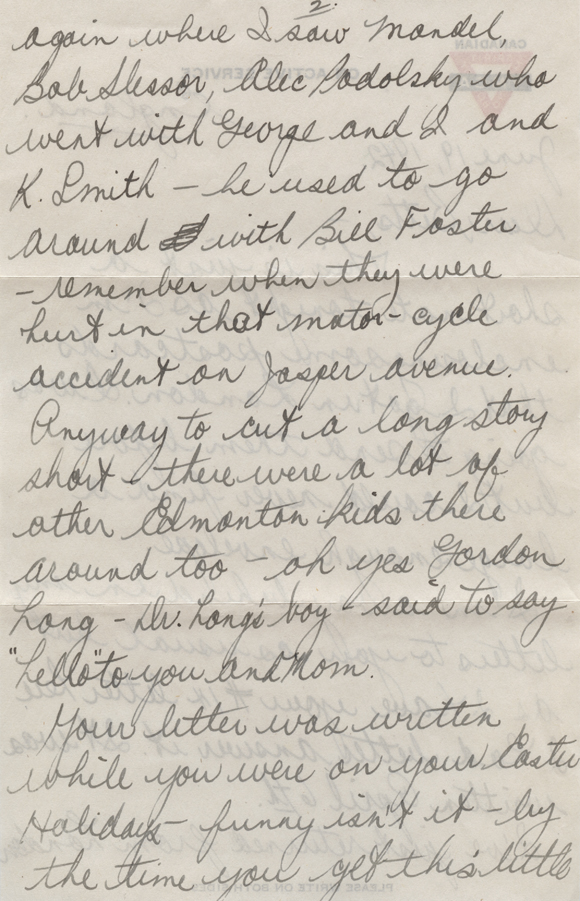 2.
again where I saw Mandel,
Bob Slessor, Alec Podolsky who
went with George and I and
K. Smith – he used to go
around with Bill Foster
– remember when they were
hurt in that motor-cycle
accident on Jasper avenue.
Anyway to cut a long story
short – there were a lot of
other Edmonton kids there
around too – oh yes Gordon
Long – Dr. Long's boy – said to say
"hello" to you and Mom.
Your letter was written
while you were on your Easter
Holidays – funny isn't it – by
the time you get this little